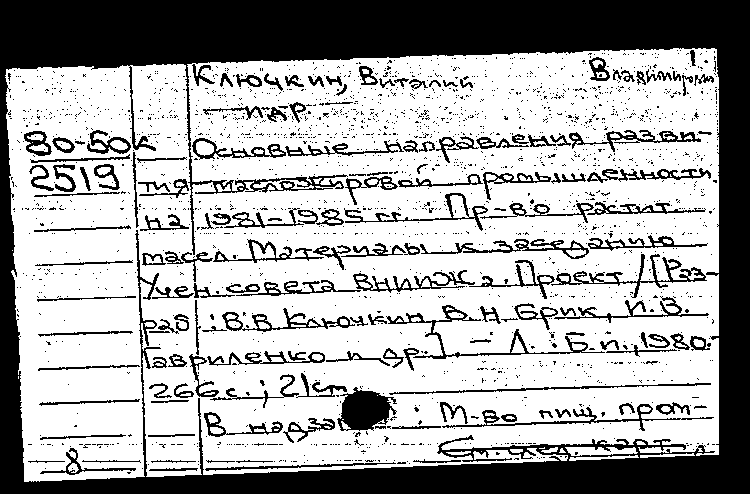 1.
Ключкин, Виталий Владимирович
и др.
80-50к Основные направления разви-
2519 тия масложировой промышленности
на 1981-1985 гг. : Пр-во растит.
масел. Материалы к заседанию
Учен. совета ВНИИЖа. Проект / [Раз-
раб.: В.В. Ключкин, В.Н. Брик, И.В.
Гавриленко и др.]. - Л. : Б.и., 1980.-
266 с. ; 21 см.
В надзаг : М-во пищ. пром-
8 См. след. карт.